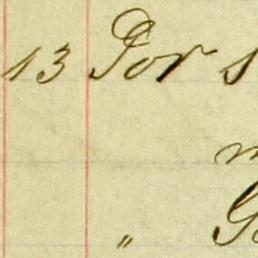 13 Por s
m
„ G